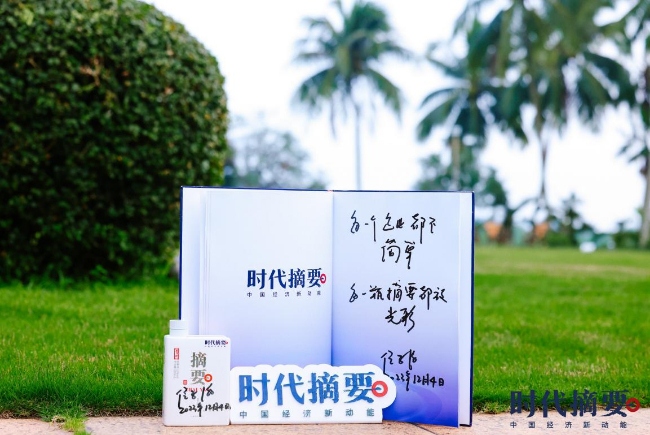 时代摘要
中国经济新动能
每一个企业都不
简单
每一瓶摘要都该
2022年12月4日
时代摘要
摘要
2022年12月4日
时代摘要
中国经济新动能
时代摘要
中国经济新动能